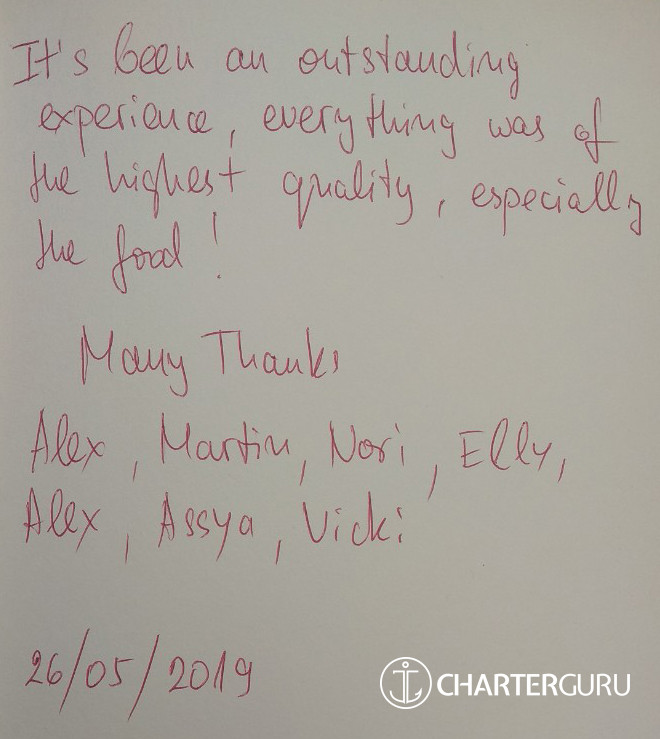 It's been an outstanding
experience, everything was of
the highest quality, especially
the food!
Many Thanks
Alex, Martin, Nori, Elly,
Alex, Assya, Vicki
26/05/2019
CHARTERGURU